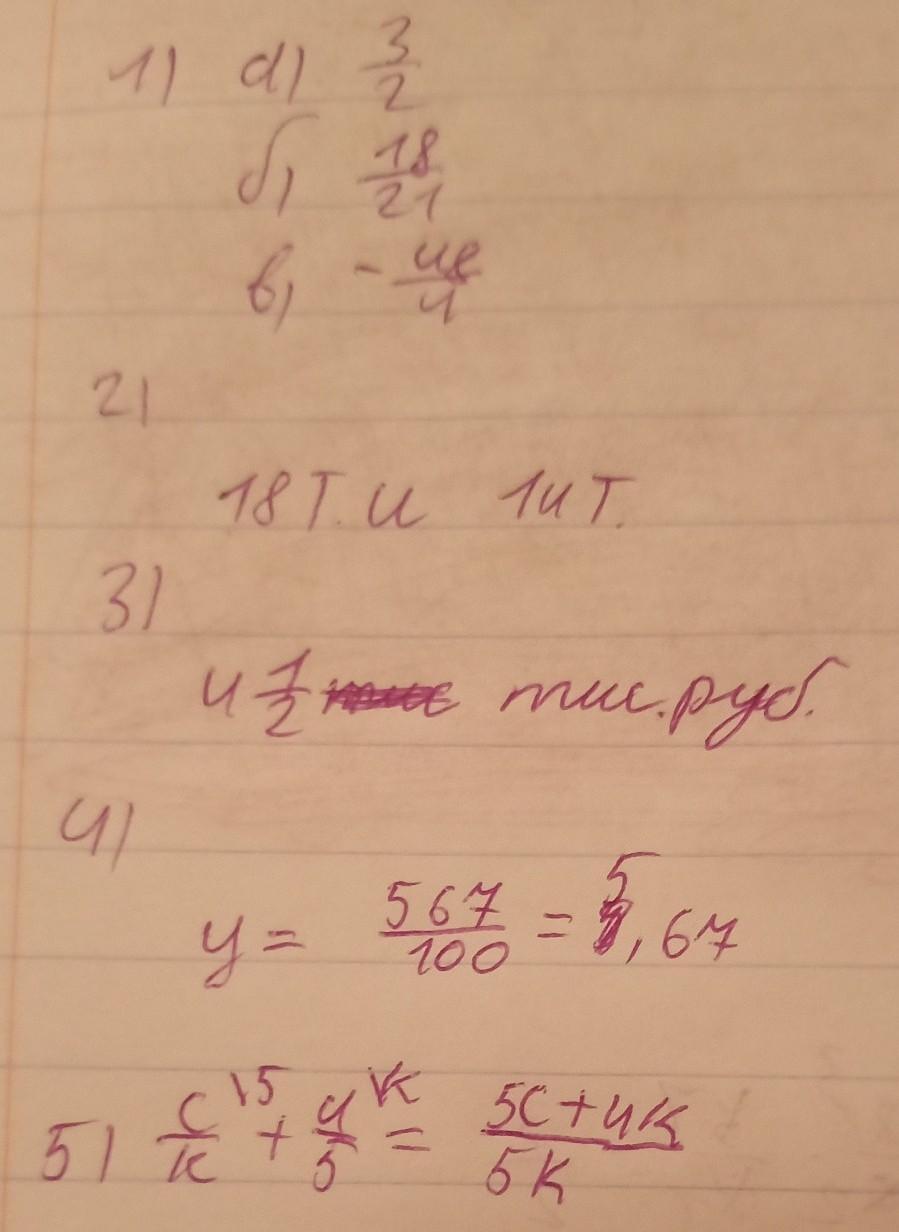 1) а) 3/2
б) 18/21
в) - 4e/4
2)
18 Т. и 14 Т.
3)
4 1/2 тис. руб.
4)
y = 567/100 = 5,67
5) c/k \5 + 4/5 \k = 5c+4k/5k